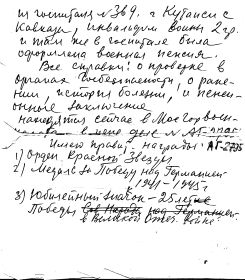 из госпиталя №369. г Кутаиси с
Кавказа, инвалидом войны 2 гр.
и там же в госпитале была
оформлена военная пенсия.
Все справки: о проверке в
органах Госбезопасности, о ране-
нии, история болезни, и пенси-
онные заключение
находятся сейчас в Мосгорвоен-
в моем деле № АГ-2795
Имею прав. награды:
1) Орден Красной Звезды
2) Медаль За Победу над Германией
1941-1945 г
3) Юбилейный значок - 25 летие
Победы над Германией
в Великой Отеч. войне